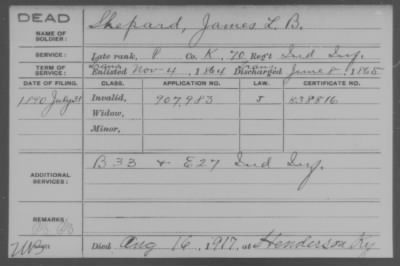 DEAD
NAME OF SOLDIER: Shepard, James L. B.
SERVICE: Late rank, P Co. K, 70 Reg't Ind Inf.
TERM OF SERVICE: Trans Enlisted Nov 4, 1864 Trans Discharged June 8, 1865
DATE OF FILING. CLASS. APPLICATION NO. LAW. CERTIFICATE NO.
1890 July 21 Invalid, 907,983 J 838816
Widow,
Minor,
ADDITIONAL SERVICES: B 33 & E 27 Ind Inf.
REMARKS:
Died Aug 16, 1917, at Henderson Ky